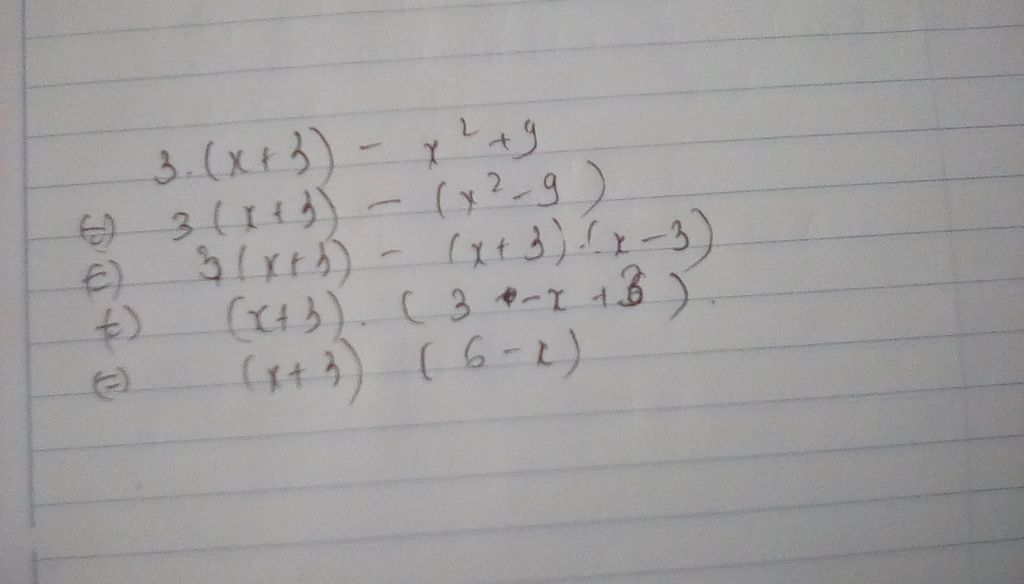 3.(x+3) - x²+9
(=) 3(x+3) - (x²-9)
(=) 3(x+3) - (x+3).(x-3)
(=) (x+3).(3-x+3).
(=) (x+3) (6-x)